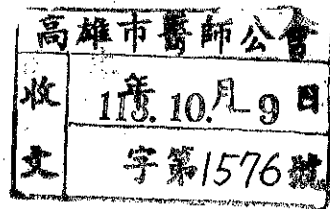 高雄市醫師公會
收文
113年10月-9日
字第1576號